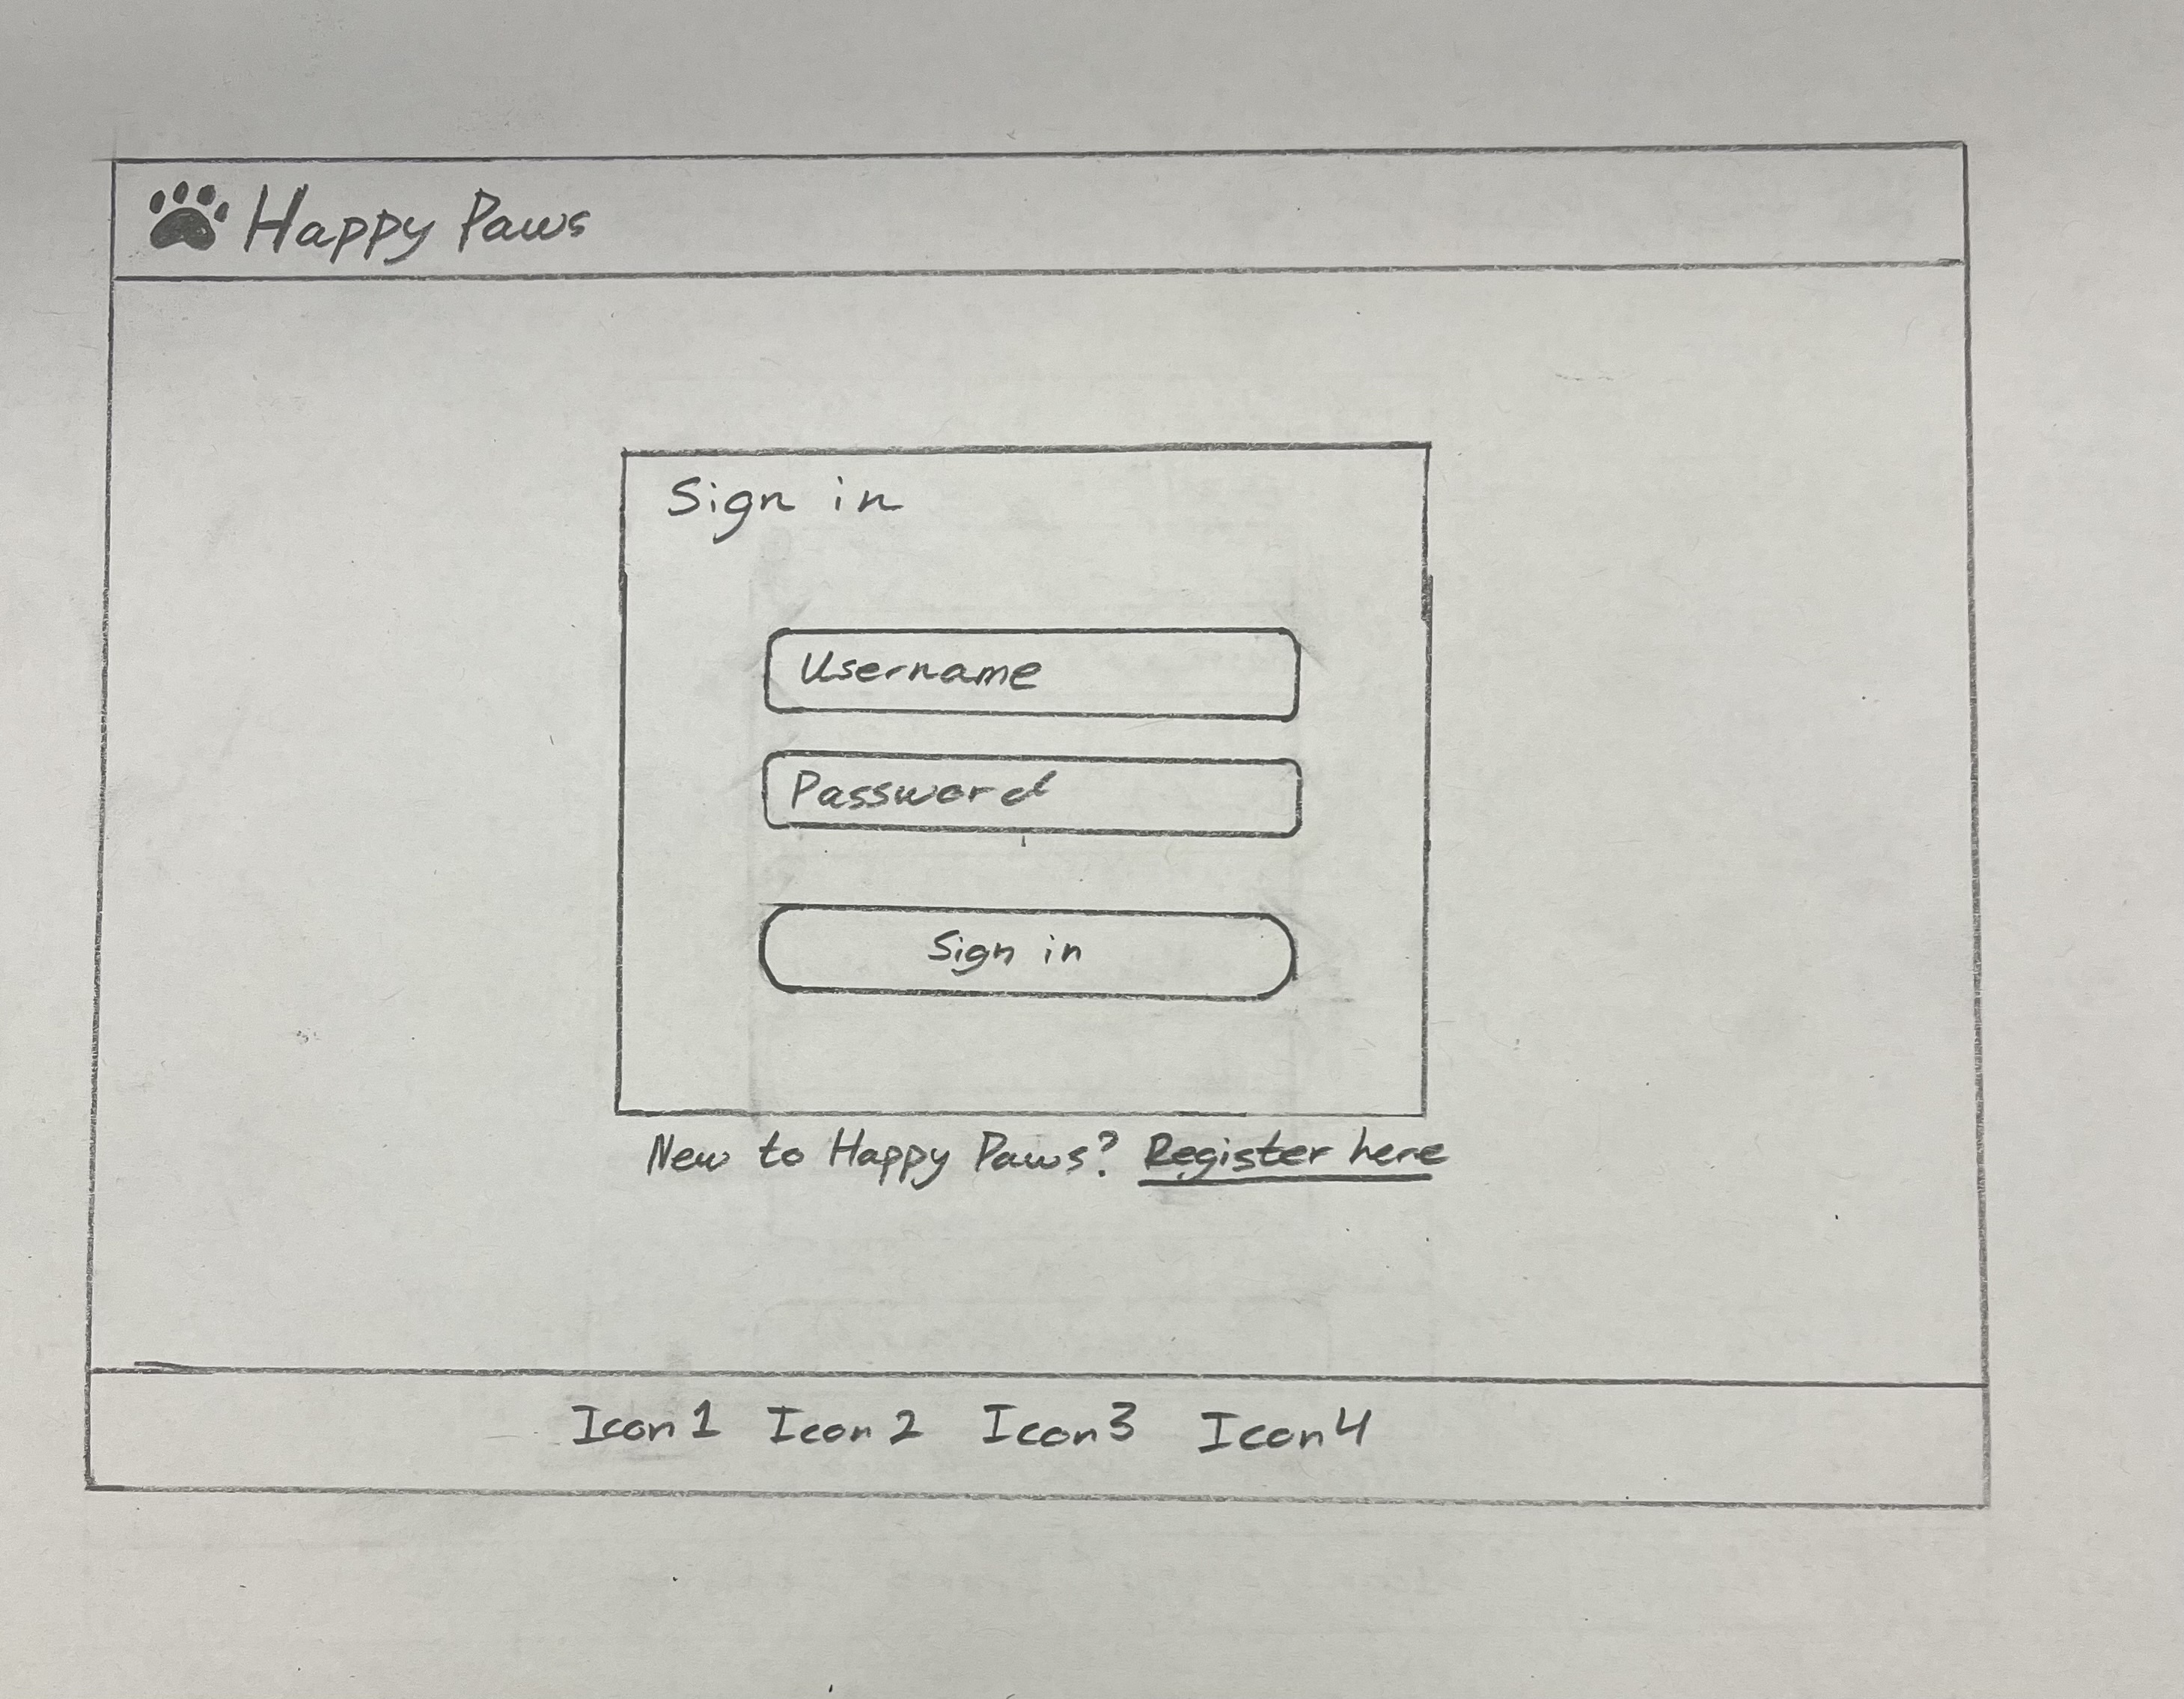 Happy Paws
Sign in
Username
Password
Sign in
New to Happy Paws? Register here
Icon 1 Icon 2 Icon 3 Icon 4